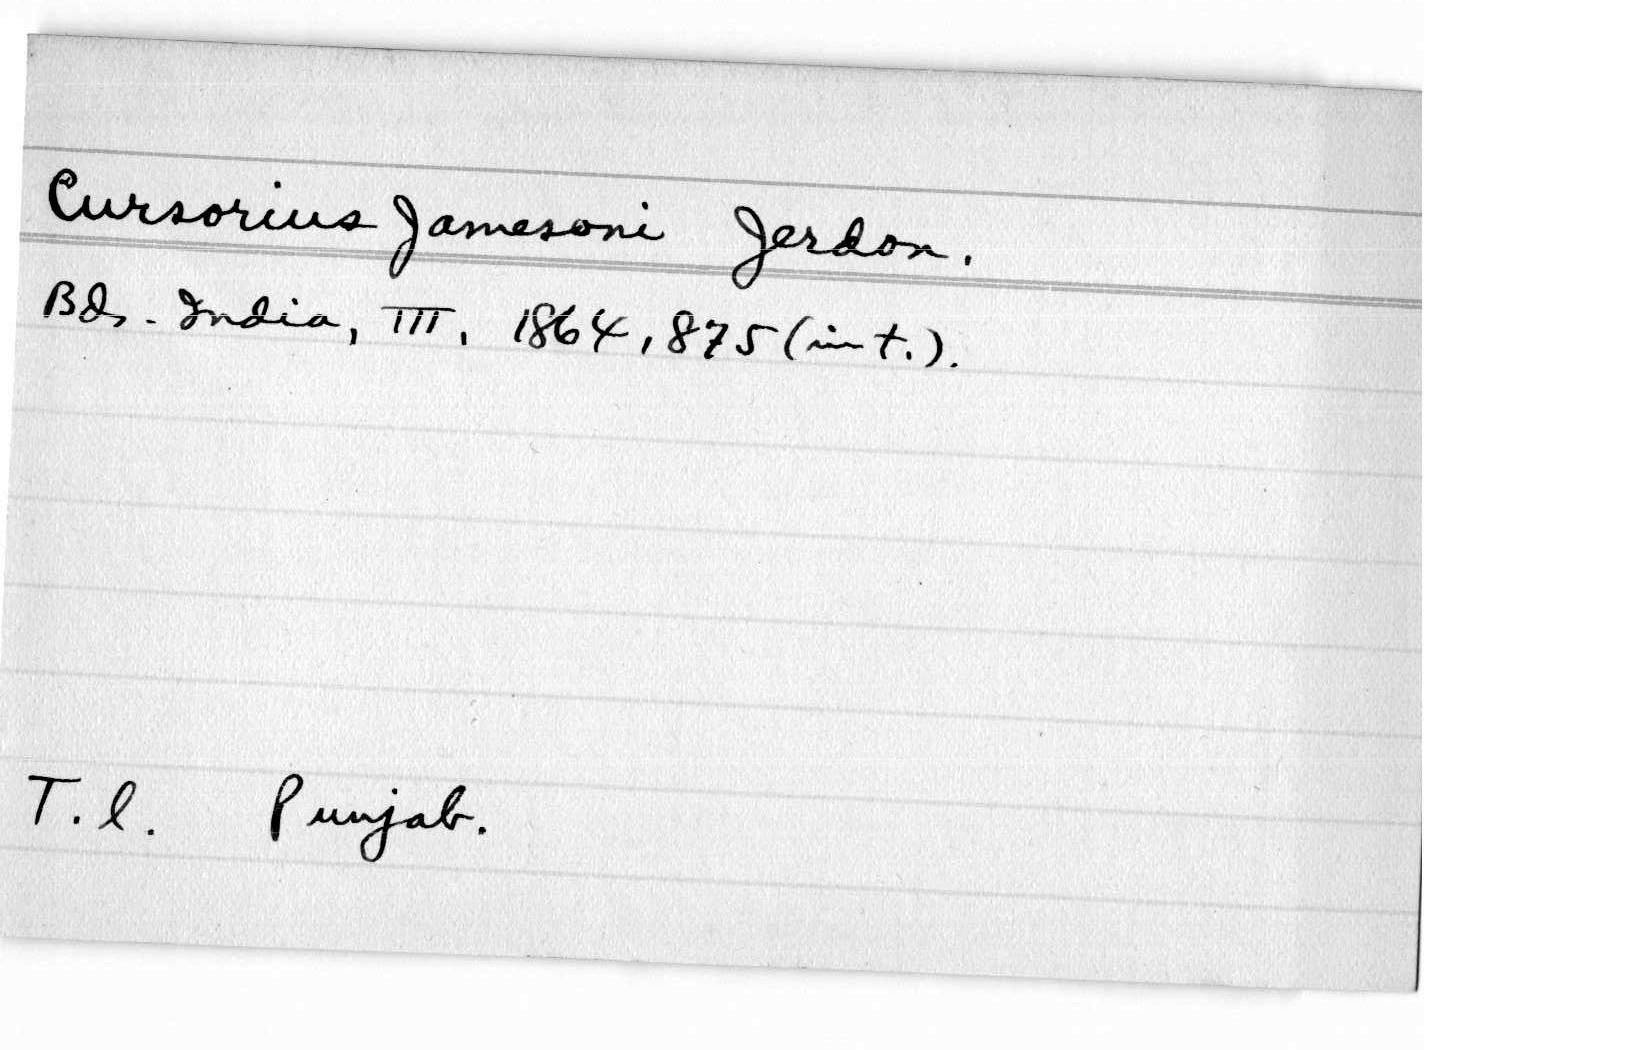 Cursorius Jamesoni Jerdon.
Bds. India, III, 1864, 875 (in t.).
T.l. Punjab.